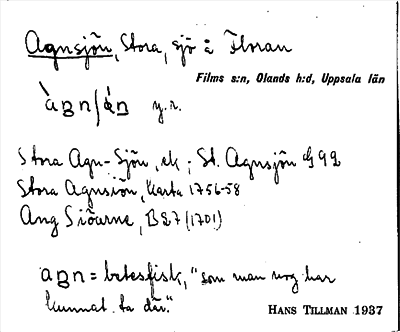 Agnsjön, Stora, sjö å Floran
Films s:n, Olands h:d, Uppsala län
y.r.
Stora Agn-Sjön, ek; St. Agnsjön G92
Stora Agnsiön, Karta 1756-58
Ang Siöarne, B27 (1701)
= betesfisk, "som man nog har
kunnat ta där."
HANS TILLMAN 1937